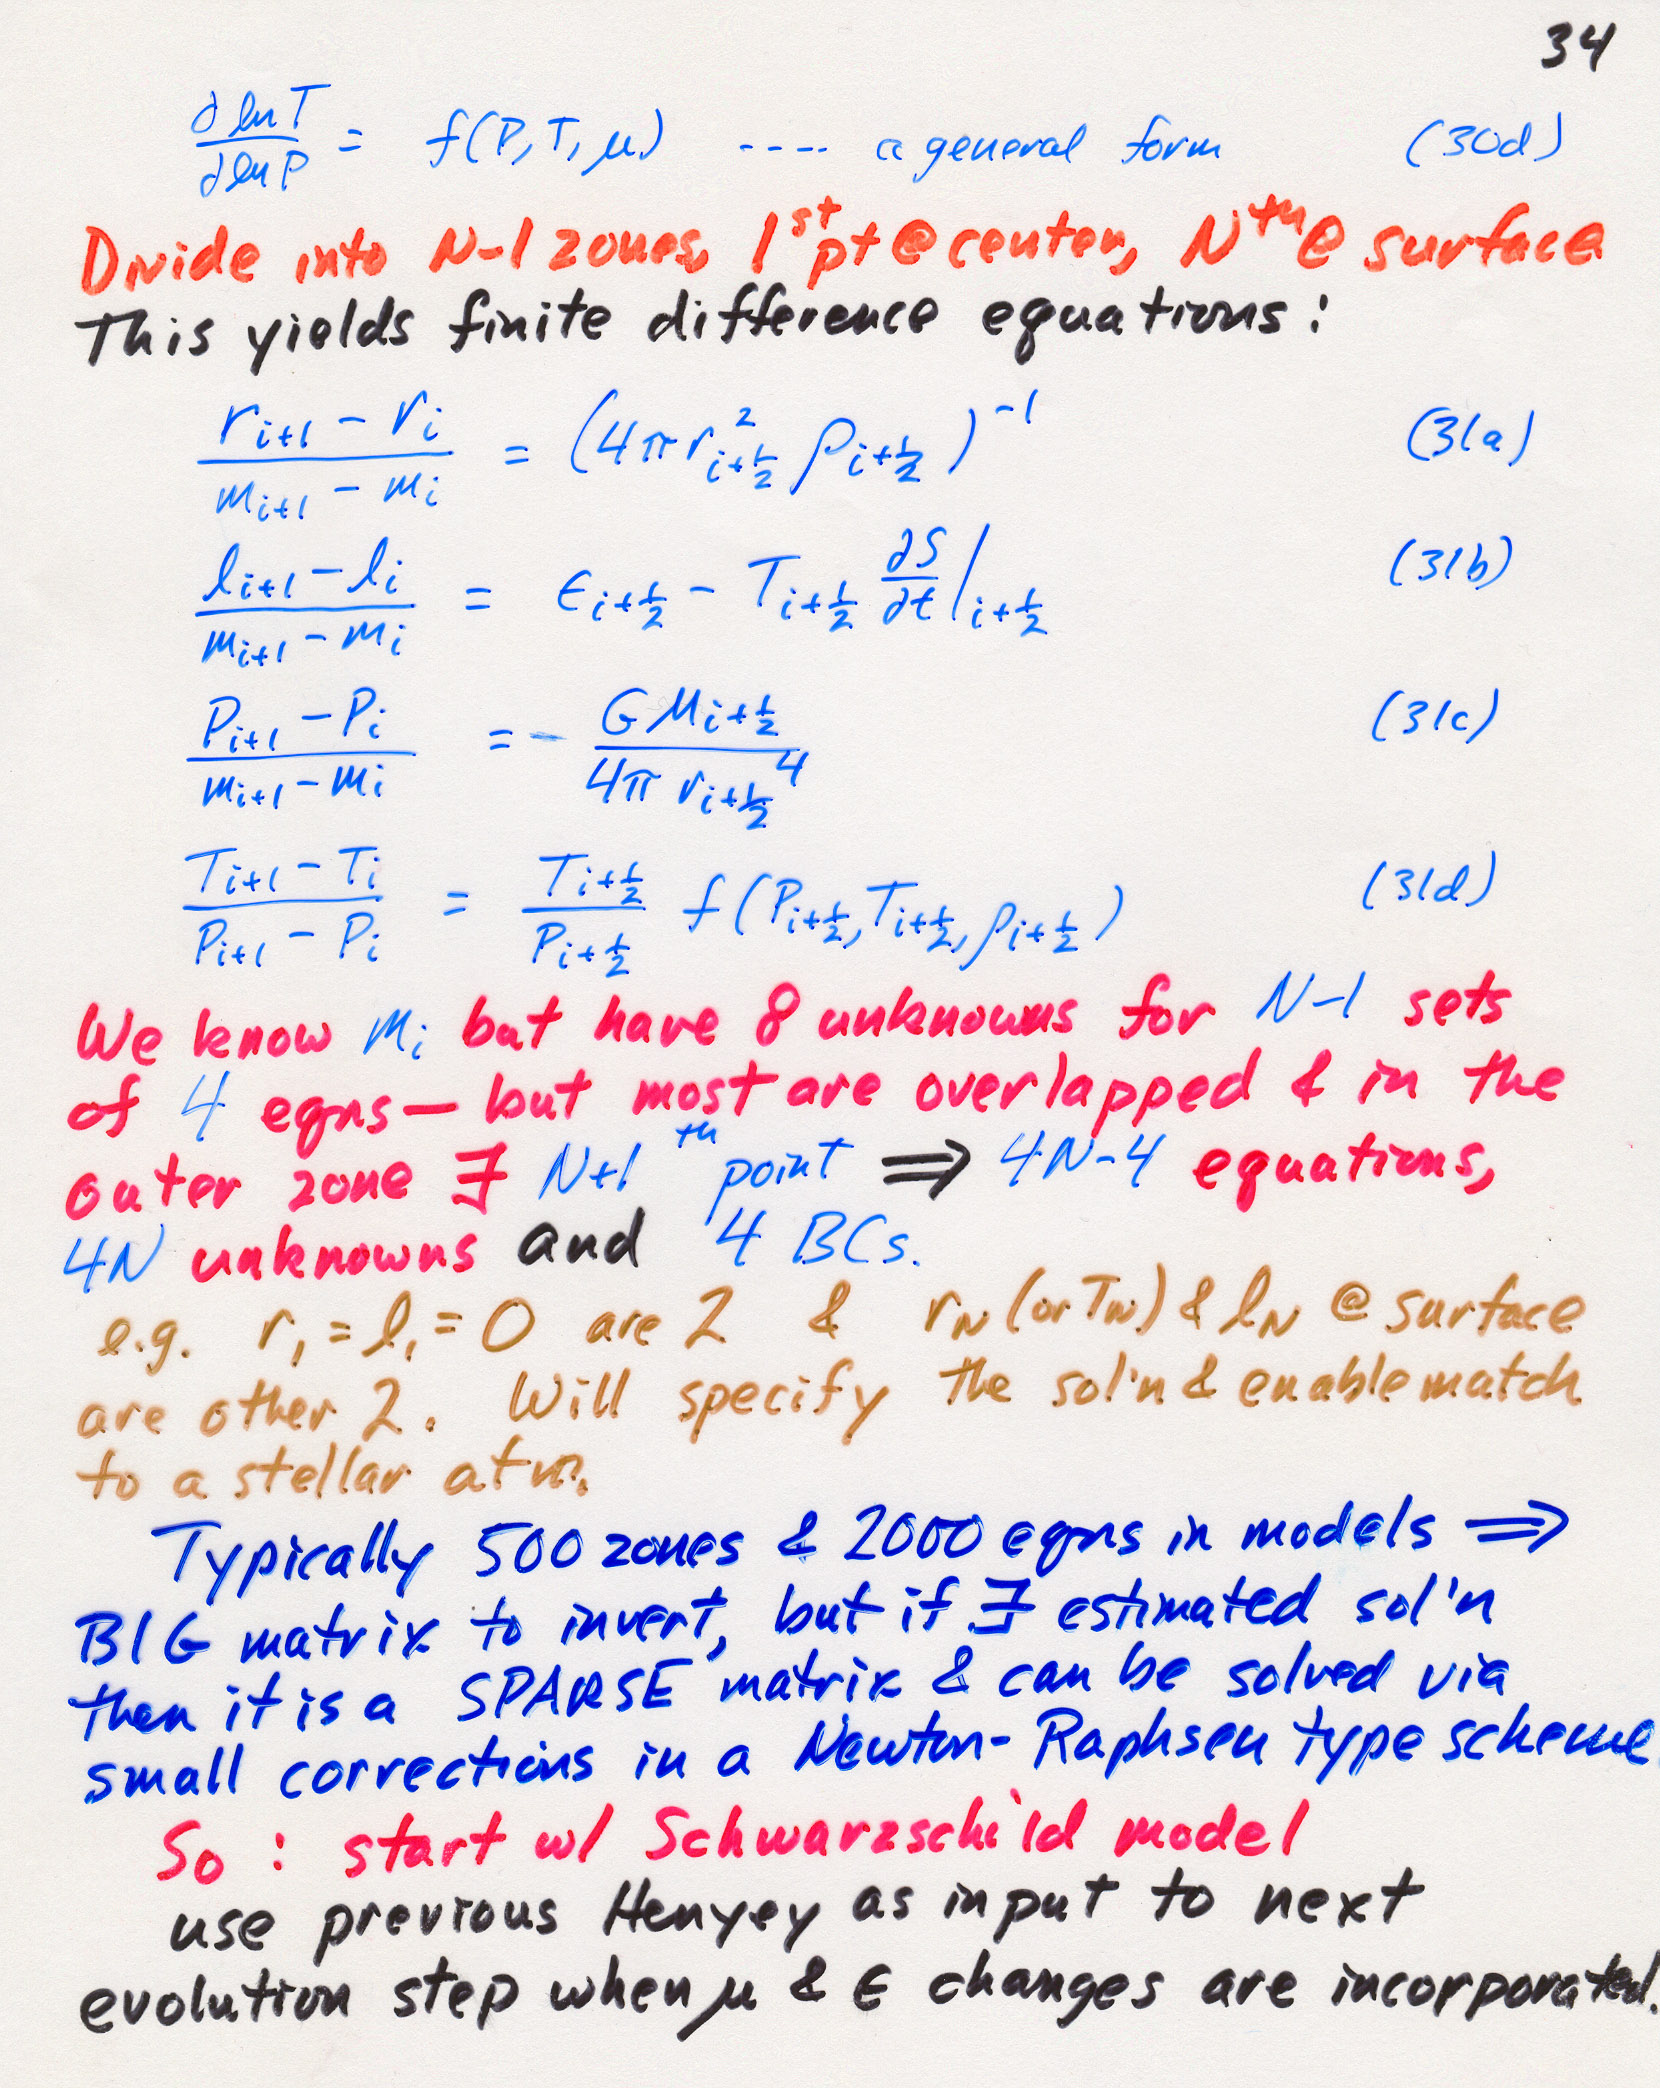 34
∂lnT/∂lnP = f(P,T,μ) ---- a general form (30d)
Divide into N-1 zones, 1st pt @ center, Nth @ surface
This yields finite difference equations:
(r_{i+1} - r_i)/(m_{i+1} - m_i) = (4π r²_{i+½} ρ_{i+½})^{-1} (31a)
(l_{i+1} - l_i)/(m_{i+1} - m_i) = ε_{i+½} - T_{i+½} ∂S/∂t|_{i+½} (31b)
(P_{i+1} - P_i)/(m_{i+1} - m_i) = - G M_{i+½}/(4π r_{i+½}^4) (31c)
(T_{i+1} - T_i)/(P_{i+1} - P_i) = T_{i+½}/P_{i+½} f(P_{i+½}, T_{i+½}, ρ_{i+½}) (31d)
We know m_i but have 8 unknowns for N-1 sets
of 4 eqns — but most are overlapped & in the
outer zone ∃ N+1th point ⟹ 4N-4 equations,
4N unknowns and 4 BCs.
e.g. r_1 = l_1 = 0 are 2 & r_N (or T_N) & l_N @ surface
are other 2. Will specify the sol'n & enable match
to a stellar atm.
Typically 500 zones & 2000 eqns in models ⟹
BIG matrix to invert, but if ∃ estimated sol'n
then it is a SPARSE matrix & can be solved via
small corrections in a Newton-Raphsen type scheme.
So: start w/ Schwarzschild model
use previous Henyey as input to next
evolution step when μ & ε changes are incorporated.